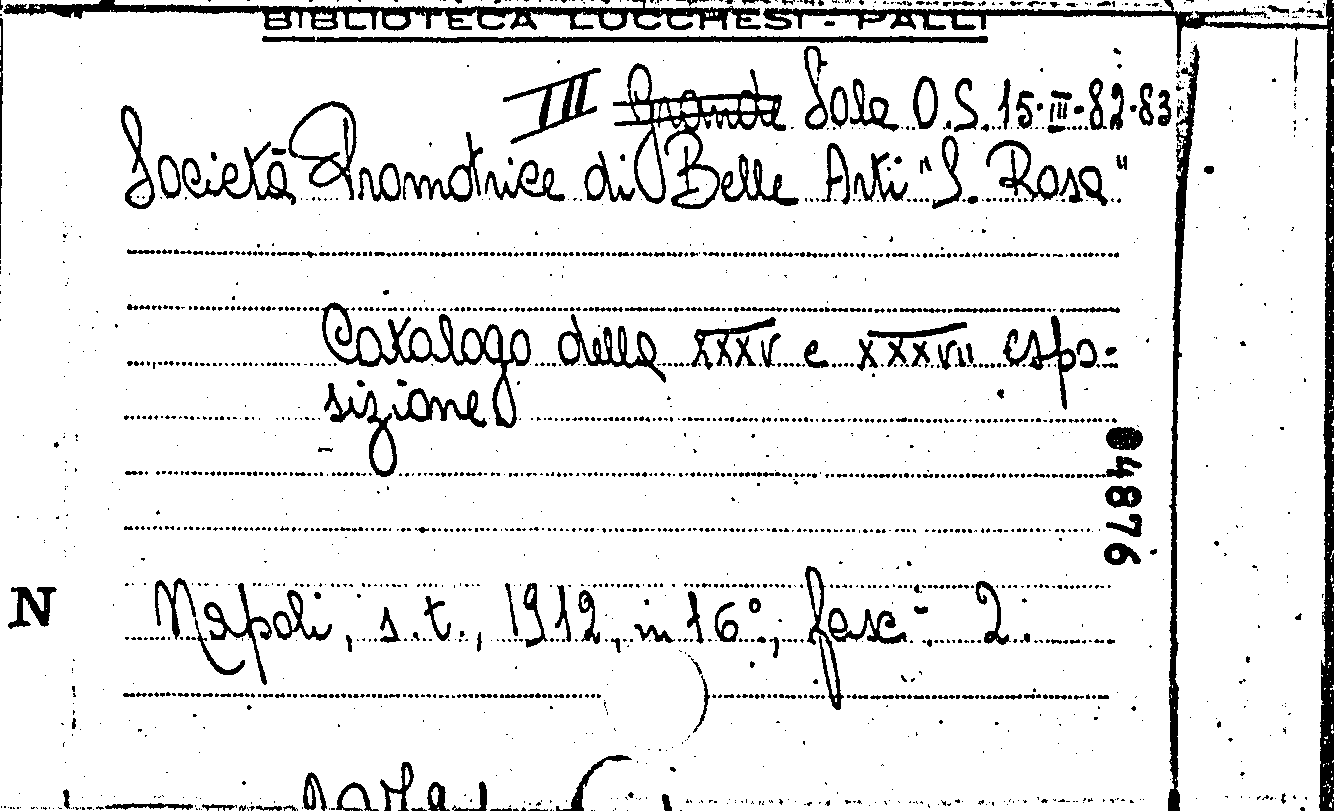 BIBLIOTECA LUCCHESI - PALLI
III Grande Sala O.S. 15-III-82-83
Società Promotrice di Belle Arti "S. Rosa"
Catalogo della XXXV e XXXVII espo-
sizione
04876
N
Napoli, s.t., 1912, in 16°, fasc. 2.